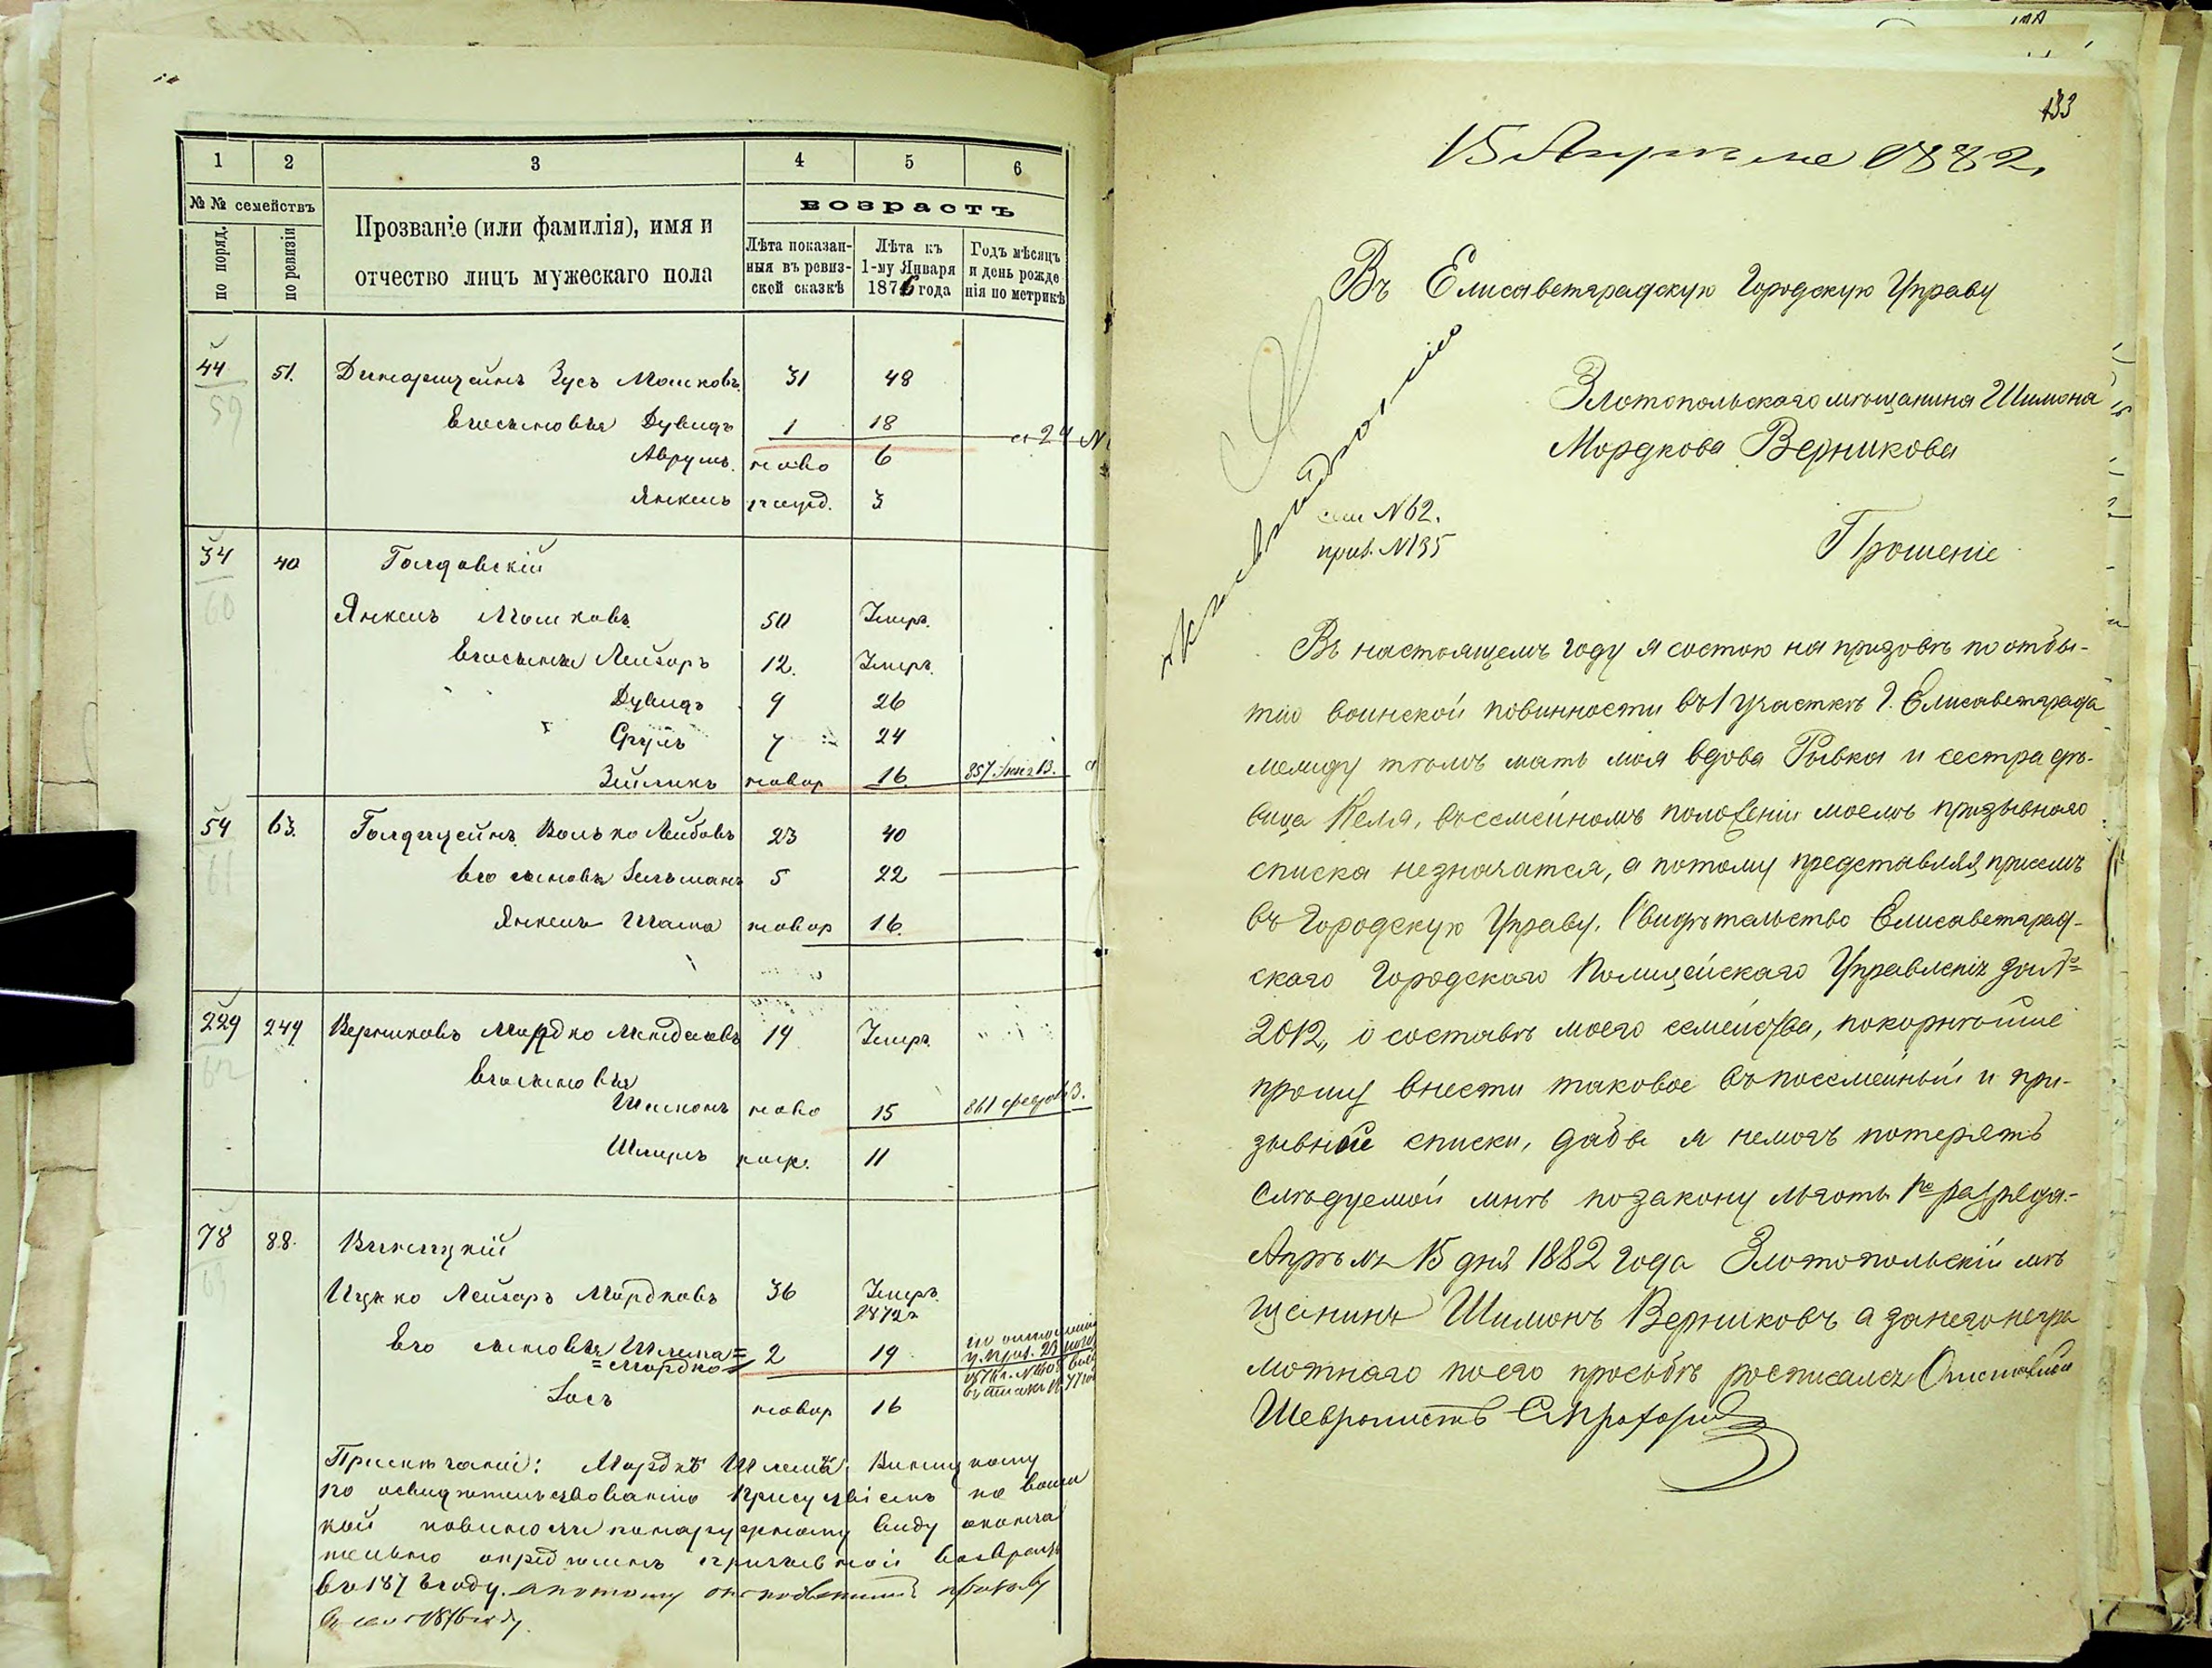 1 2 3 4 5 6
№№ семействъ
по поряд.
по ревизіи
Прозваніе (или фамилія), имя и
отчество лицъ мужескаго пола
возрастъ
Лѣта показан-
ныя въ ревиз-
ской сказкѣ
Лѣта къ
1-му Января
1876 года
Годъ мѣсяцъ
и день рожде
нія по метрикѣ
44 51. Зусъ Мошковъ. 31 48
59
Его сыновья Дувидъ 1 18
Аврумъ. ново 6
Янкель рожд. 3
34 40 Голдовскій
60
Янкель Мошковъ 50 Умеръ.
Его сыновья Лейзоръ 12. Умеръ.
Дувидъ 9 26
Сруль 7 24
Зейликъ новор 16. 857 13.
54 63. Голдштейнъ Волько Лейбовъ 23 40
61
Его сыновья 5 22
Янкель Шама новор 16.
229 249 Верниковъ Мордко 19 Умеръ.
62
Его сыновья
Шимонъ ново 15 861 3.
Шмуль рожд. 11
78 88. Виницкій
63
Ицько Лейзоръ Мордковъ 36 Умеръ
1872 г
Его сыновья Шлема= 2 19
=Мордко
новор 16
Примѣчаніе: Мордкѣ Шлемѣ Виницкому
по освидѣтельствованію Присутствіемъ по воин
кой повинности по наружному виду оконча
тельно опредѣленъ призывной возрастъ
въ 187 году. а потому
133
15 Апреля 1882.
Въ Елисаветградскую Городскую Управу
Златопольскаго мѣщанина Шимона
Мордкова Верникова
сем №62.
приз. №135
Прошеніе
Въ настоящемъ году я состою на призовѣ по отбы-
тію воинской повинности въ 1 участкѣ г. Елисаветграда
между тѣмъ мать моя вдова Рывка и сестра дѣ-
вица Келя, въ семейномъ положеніи моемъ призывнаго
списка незначатся, а потому представляя присемъ
въ Городскую Управу, Свидѣтельство Елисаветград-
скаго Городскаго Полицейскаго Управленія за №
2012, о составѣ моего семейства, покорнѣйше
прошу внести таковое въ посемейный и при-
зывные списки, дабы я немогъ потерять
слѣдуемой мнѣ по закону льготы 1го разряда.-
Апрѣля 15 дня 1882 года Златопольскій мѣ
щанинъ Шимонъ Верниковъ а за него негра
мотнаго по его просьбѣ росписался Отставной
Шевронистъ